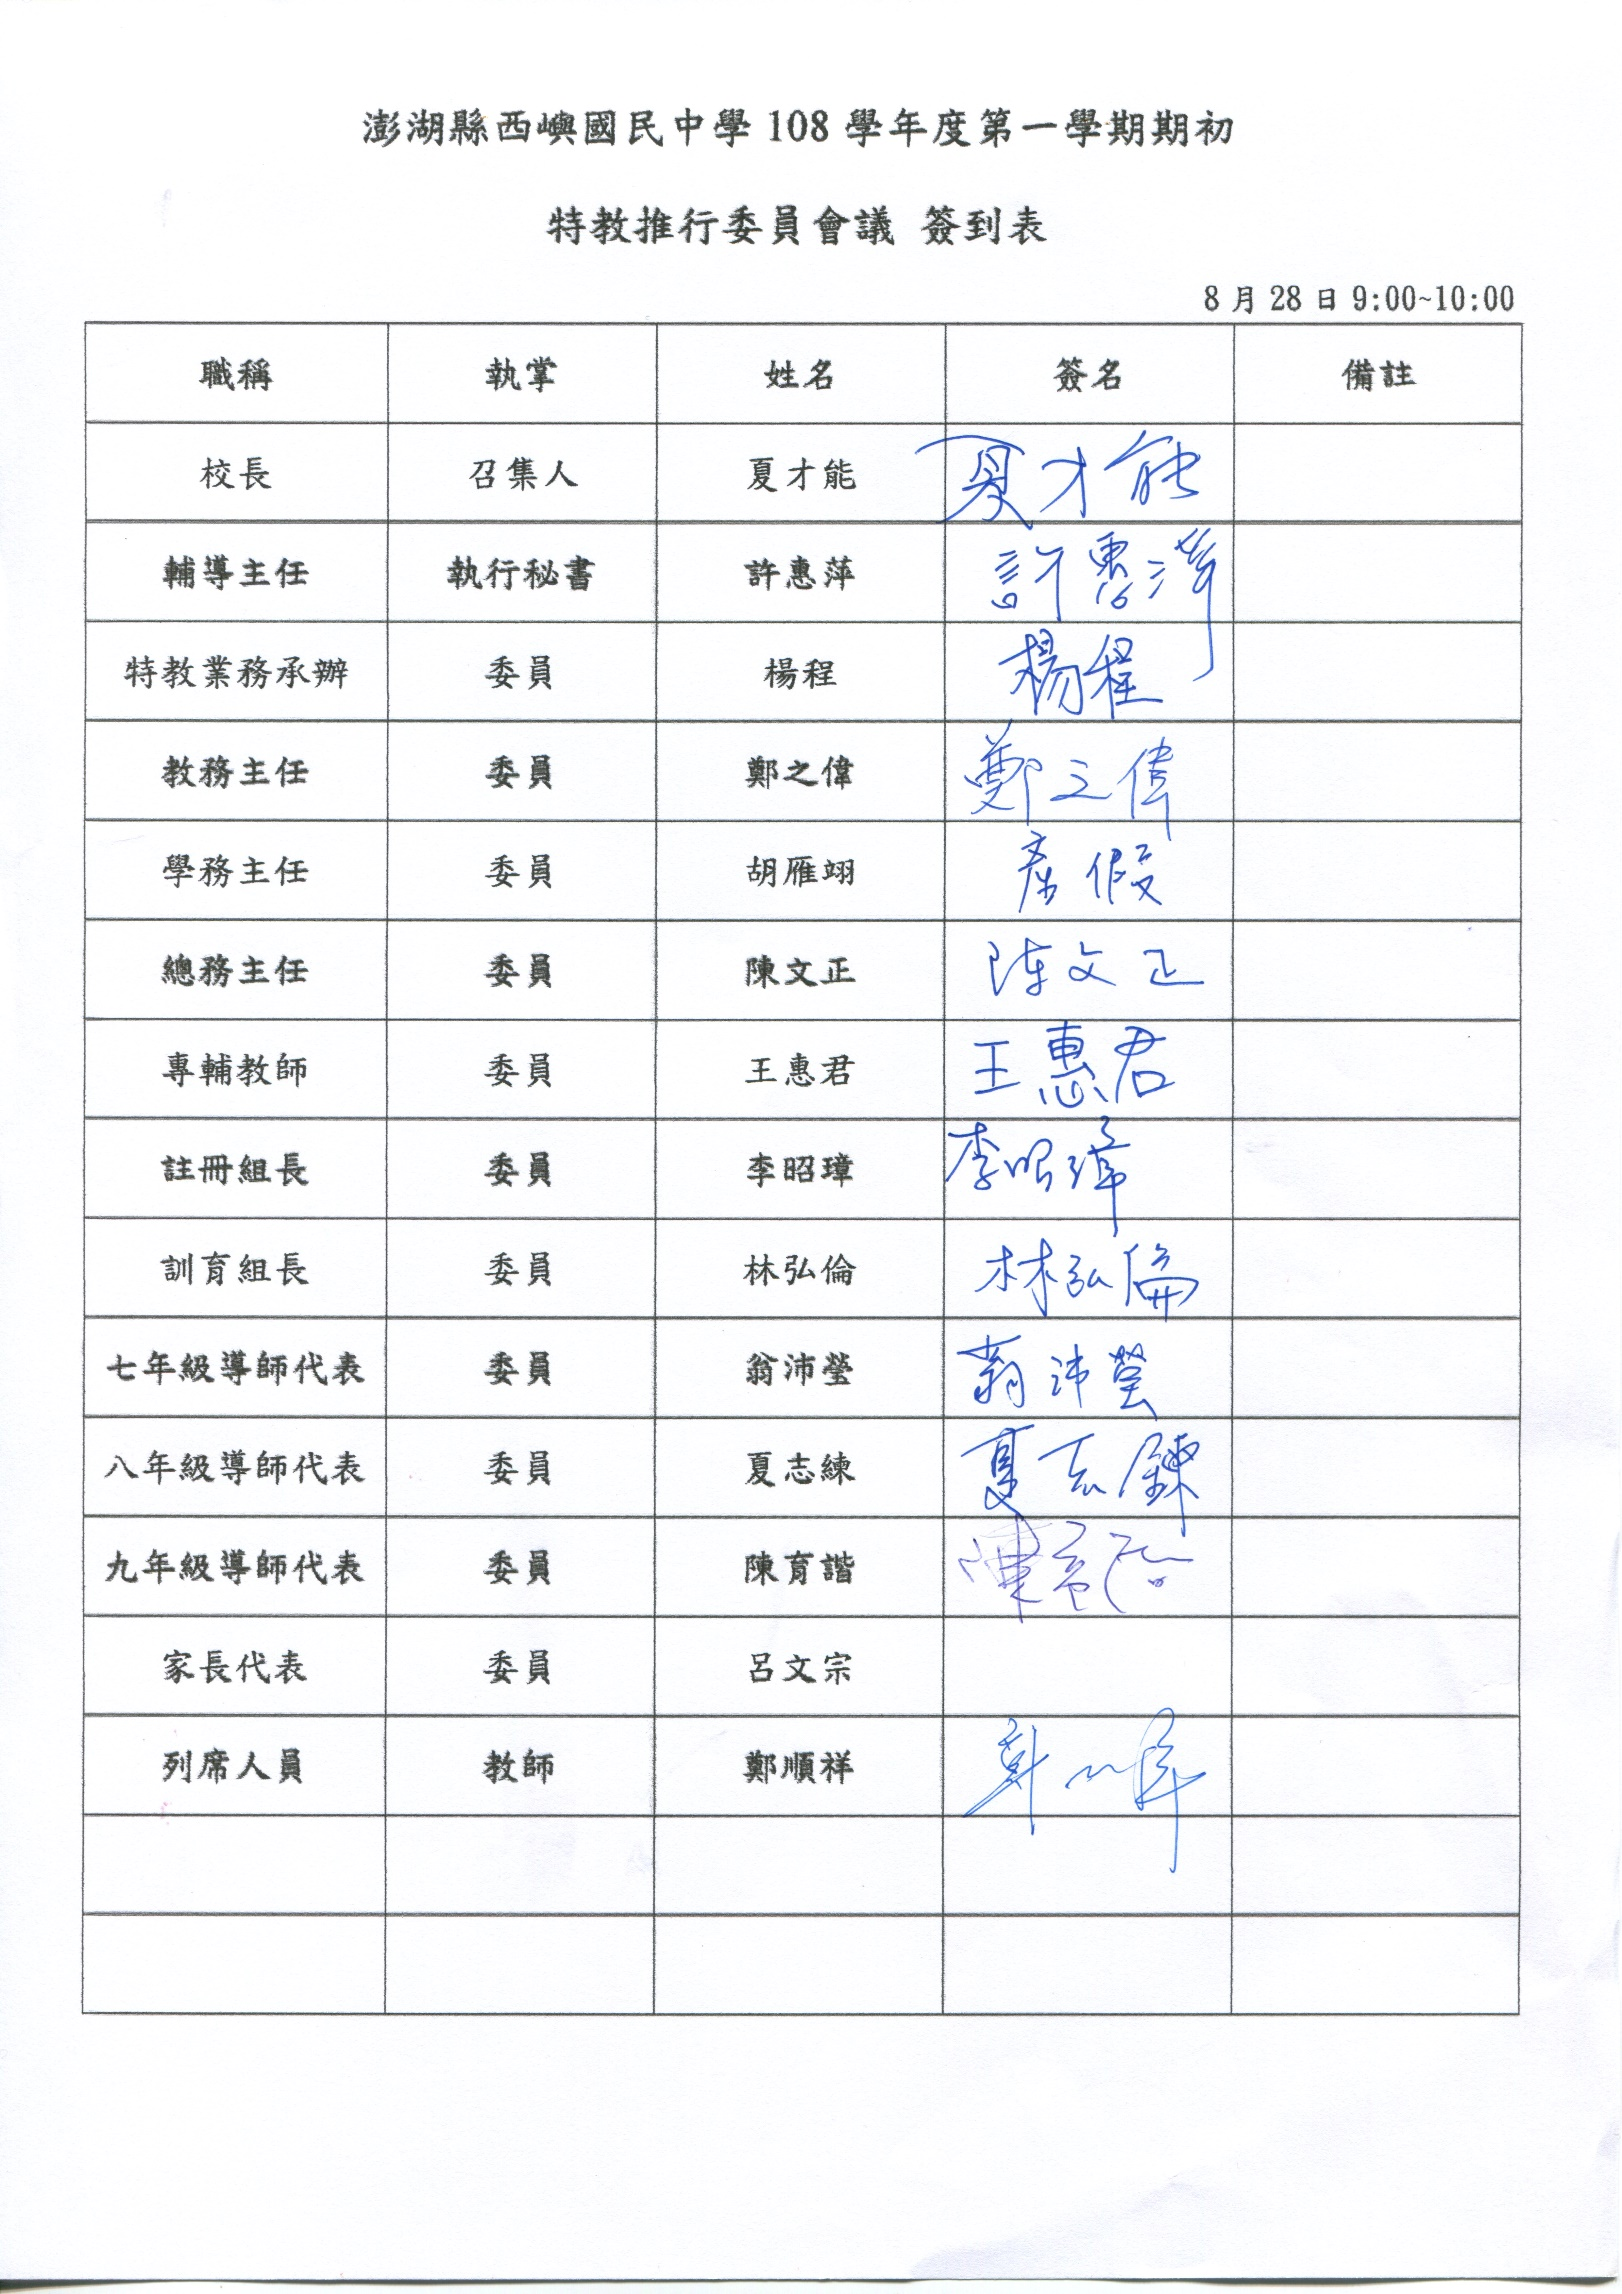 澎湖縣西嶼國民中學 108 學年度第一學期期初
特教推行委員會議 簽到表
8 月 28 日 9:00~10:00
職稱 執掌 姓名 簽名 備註
校長 召集人 夏才能 夏才能
輔導主任 執行秘書 許惠萍 許惠萍
特教業務承辦 委員 楊程 楊程
教務主任 委員 鄭之偉 鄭之偉
學務主任 委員 胡雁翊 產假
總務主任 委員 陳文正 陳文正
專輔教師 委員 王惠君 王惠君
註冊組長 委員 李昭璋 李昭璋
訓育組長 委員 林弘倫 林弘倫
七年級導師代表 委員 翁沛瑩 翁沛瑩
八年級導師代表 委員 夏志練 夏志鍊
九年級導師代表 委員 陳育諧 陳育
家長代表 委員 呂文宗
列席人員 教師 鄭順祥